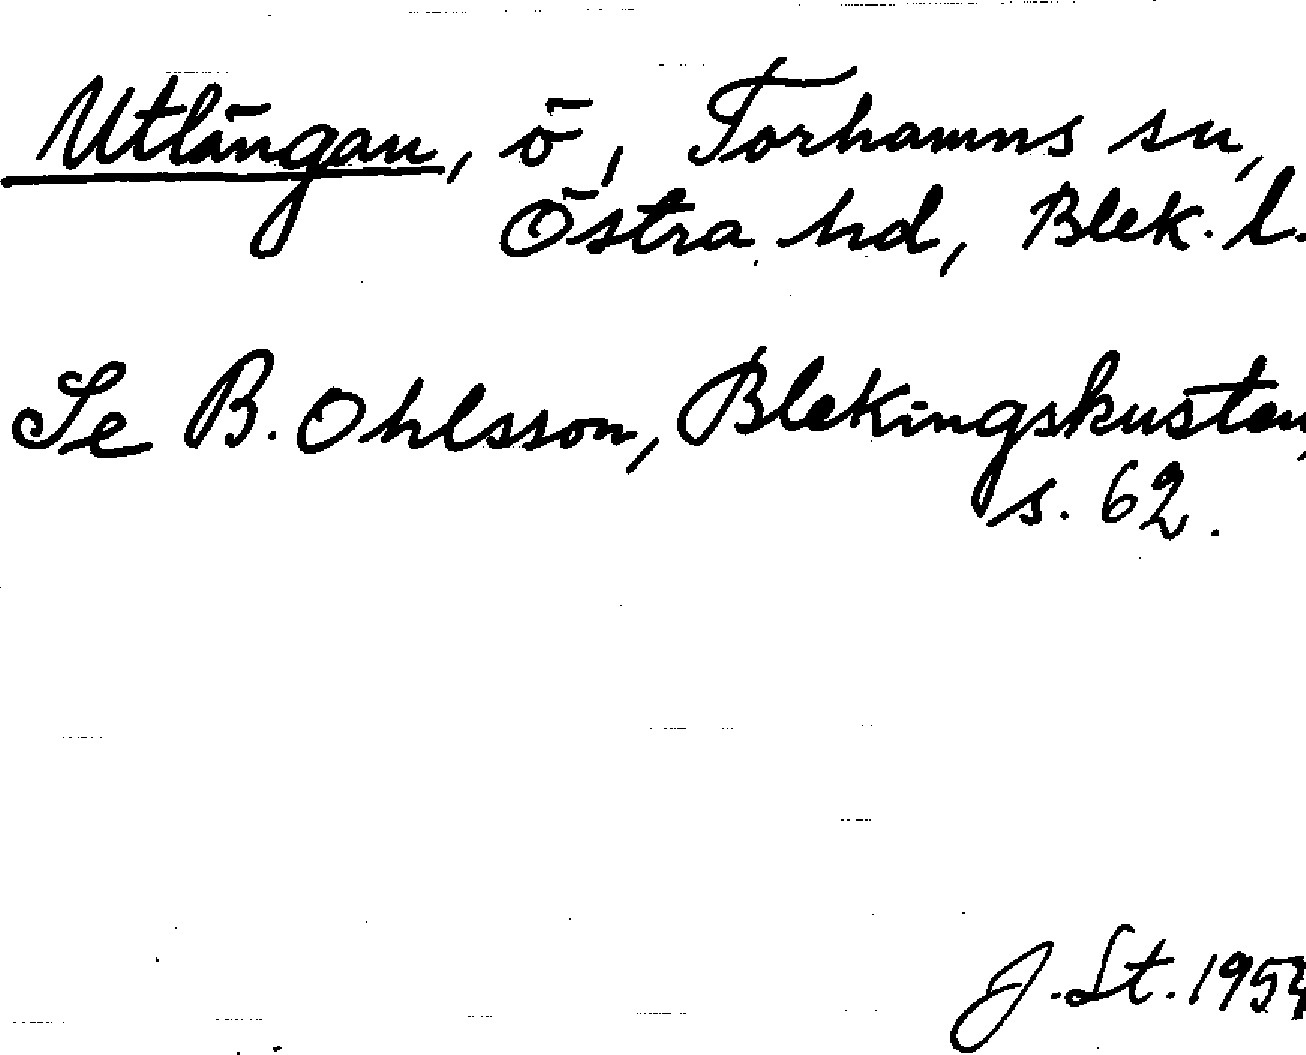 Utlängan, ö, Torhamns sn,
Östra hd, Blek. l.
Se B. Ohlsson, Blekingskusten,
s. 62.
J. St. 1954